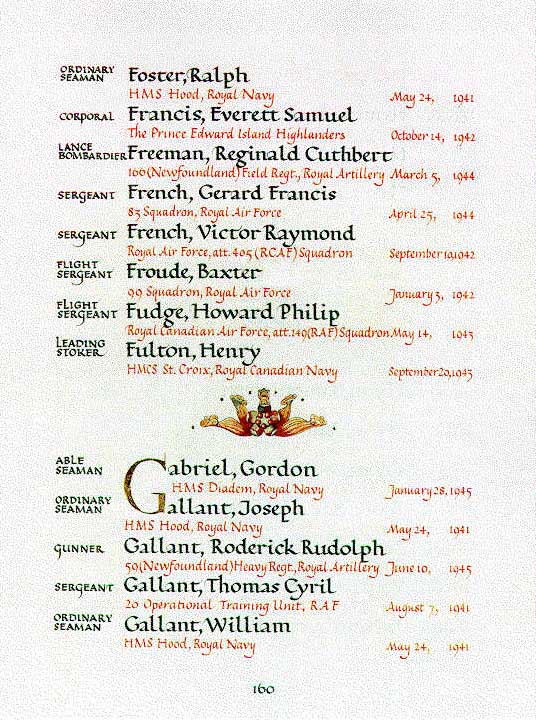 ORDINARY SEAMAN Foster, Ralph
HMS Hood, Royal Navy May 24, 1941
CORPORAL Francis, Everett Samuel
The Prince Edward Island Highlanders October 14, 1942
LANCE BOMBARDIER Freeman, Reginald Cuthbert
166 (Newfoundland) Field Regt., Royal Artillery March 5, 1944
SERGEANT French, Gerard Francis
83 Squadron, Royal Air Force April 25, 1944
SERGEANT French, Victor Raymond
Royal Air Force, att. 405 (RCAF) Squadron September 19, 1942
FLIGHT SERGEANT Froude, Baxter
99 Squadron, Royal Air Force January 5, 1942
FLIGHT SERGEANT Fudge, Howard Philip
Royal Canadian Air Force, att. 149 (RAF) Squadron May 14, 1943
LEADING STOKER Fulton, Henry
HMCS St. Croix, Royal Canadian Navy September 20, 1943
ABLE SEAMAN Gabriel, Gordon
HMS Diadem, Royal Navy January 28, 1945
ORDINARY SEAMAN Gallant, Joseph
HMS Hood, Royal Navy May 24, 1941
GUNNER Gallant, Roderick Rudolph
59 (Newfoundland) Heavy Regt., Royal Artillery June 10, 1945
SERGEANT Gallant, Thomas Cyril
20 Operational Training Unit, RAF August 7, 1941
ORDINARY SEAMAN Gallant, William
HMS Hood, Royal Navy May 24, 1941
160